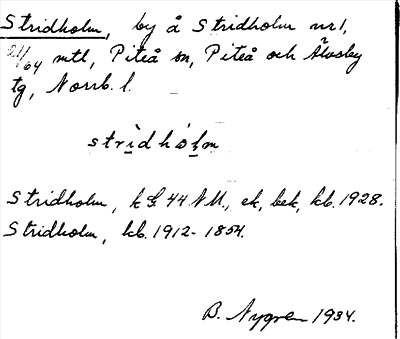 Stridholm, by å Stridholm nr 1,
21/64 mtl, Piteå sn, Piteå och Älvsby
tg, Norrb. l.
strìdhólm
Stridholm, k S. 44 NU., ek, bek, kb. 1928.
Stridholm, kb. 1912-1854.
B. Nygren 1934.